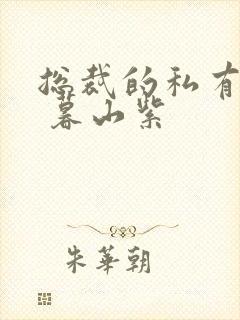 总裁的私有
暮山紫
朱华朝